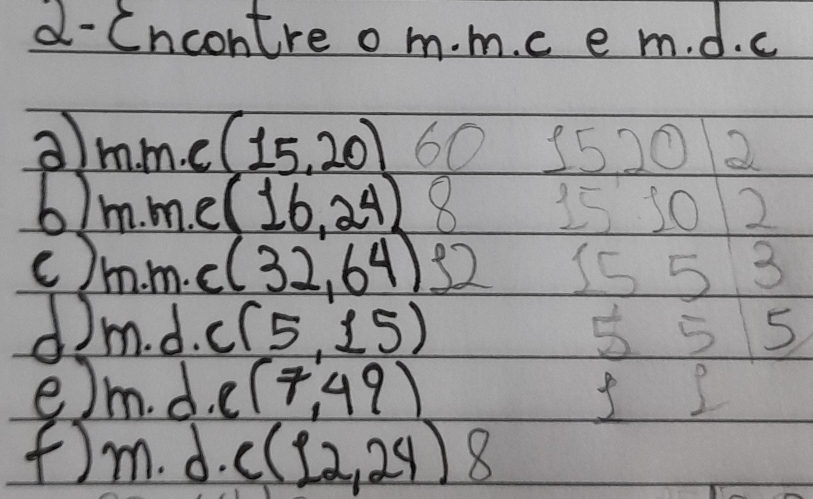 2-Encontre o m.m.c e m.d.c
a) m.m.c(15,20) 60 15 20 | 2
b) m.m.c(16,24) 8 15 10 | 2
c) m.m.c(32,64) 32 15 5 | 3
d) m.d.c(5,15) 5 5 | 5
e) m.d.c(7,49) 1 1
f) m.d.c(12,24) 8